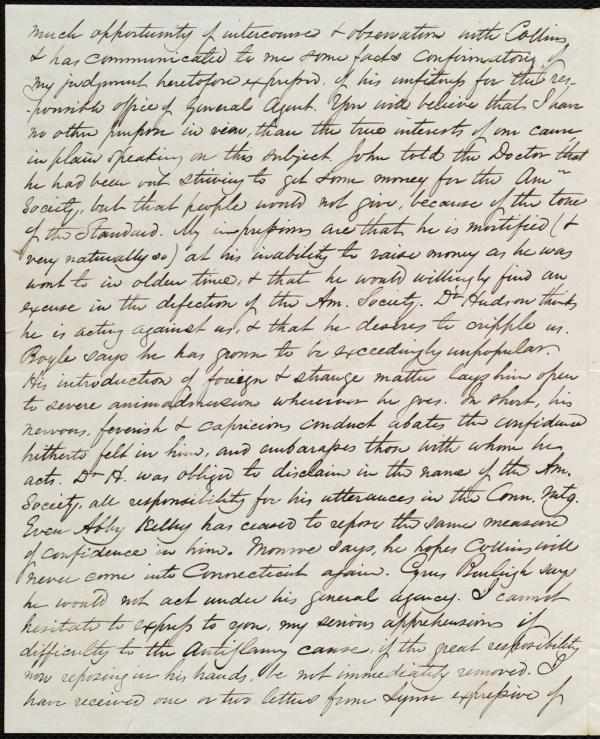 much opportunity of intercourse & observation with Collins
& has communicated to me some facts confirmatory of
my judgment heretofore expressed, of his unfitness for the res-
-ponsible office of General Agent. You will believe that I have
no other purpose in view, than the true interests of our cause
in plain speaking on this subject. John told the Doctor that
he had been out striving to get some money for the Amn
Society, but that people would not give, because of the tone
of the Standard. My impressions are that he is mortified (&
very naturally so) at his inability to raise money as he was
wont to in olden time, & that he would willingly find an
excuse in the defection of the Am. Society. Dr Hudson thinks
he is acting against us, & that he desires to cripple us.
Boyle says he has grown to be exceedingly unpopular.
His introduction of foreign & strange matter lays him open
to severe animadversion wherever he goes. In short, his
nervous, feverish & capricious conduct abates the confidence
hitherto felt in him, and embarasses those with whom he
acts. Dr H. was obliged to disclaim in the name of the Am.
Society, all responsibility for his utterances in the Conn. Mtg.
Even Abby Kelley has ceased to repose the same measure
of confidence in him. Monroe says, he hopes Collins will
never come into Connecticut again. Cyrus Burleigh says
he would not act under his general agency. I cannot
hesitate to express to you, my serious apprehensions of
difficulty to the Antislavery cause, if the great responsibility
now reposing in his hands, be not immediately removed. I
have received one or two letters from Lynn expressive of